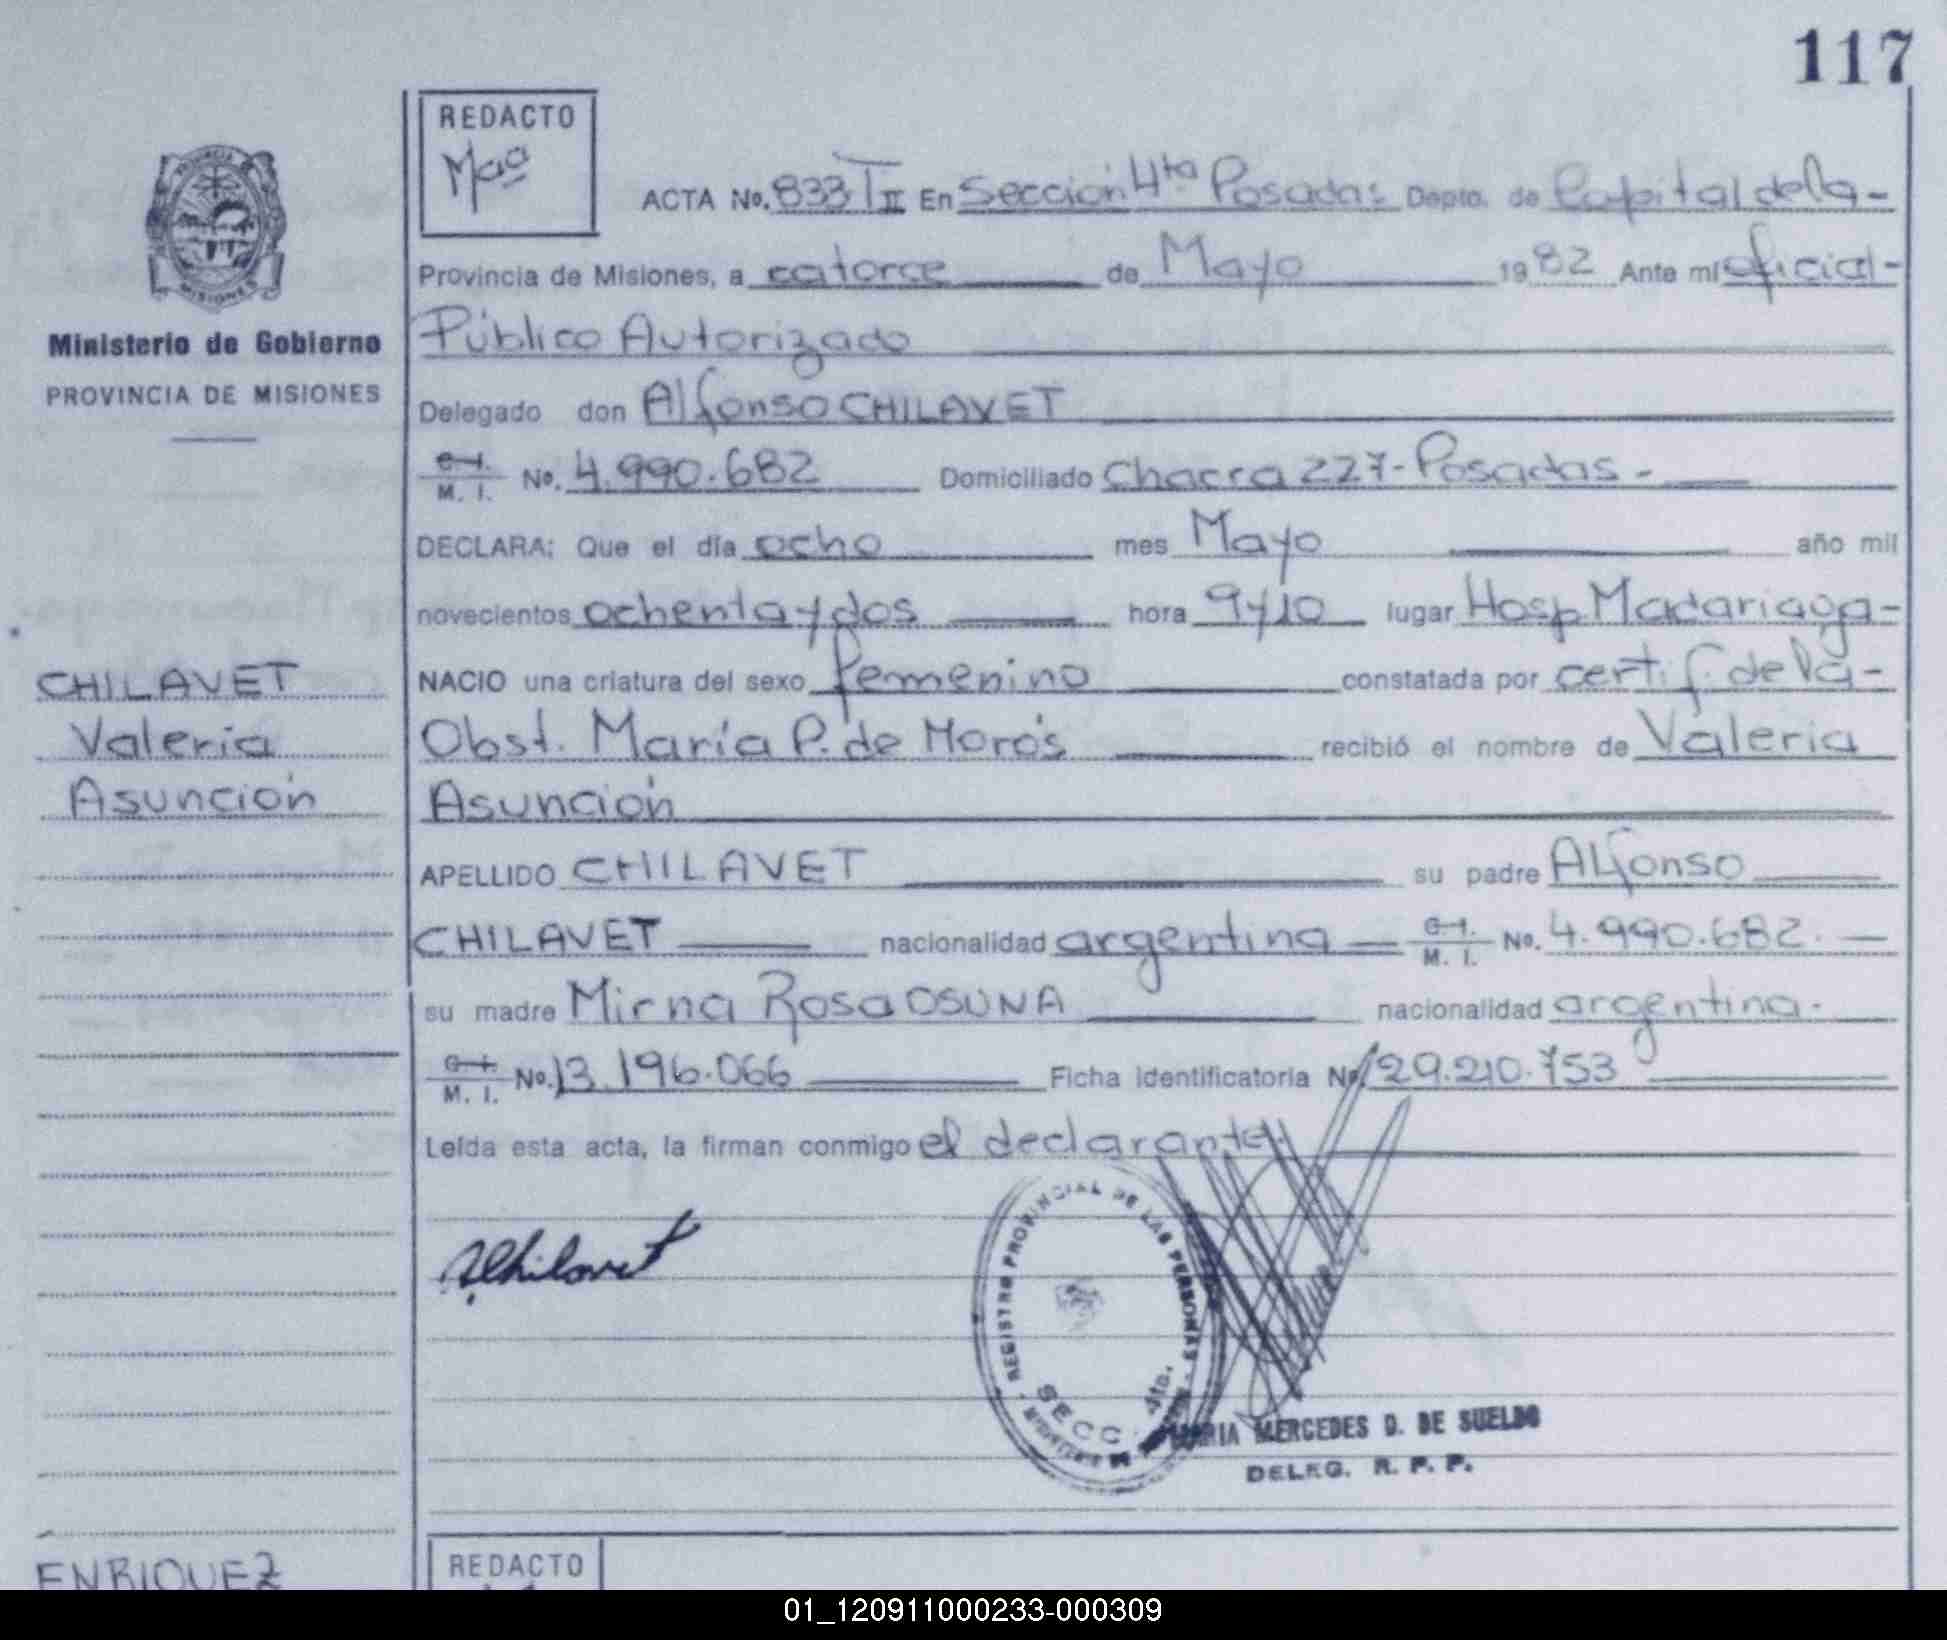 117
REDACTO
Maª
ACTA No. 833 T II En Sección 4ta Posadas Depto. de Capital de la-
Provincia de Misiones, a catorce de Mayo 1982 Ante mí oficial-
Público Autorizado
Delegado don Alfonso CHILAVET
C. I.
M. I. No. 4.990.682 Domiciliado Chacra 227-Posadas-
DECLARA: Que el día ocho mes Mayo año mil
novecientos ochenta y dos hora 9y10 lugar Hosp Madariaga-
NACIO una criatura del sexo femenino constatada por certif. de la-
Obst. María P. de Morós recibió el nombre de Valeria
Asunción
APELLIDO CHILAVET su padre Alfonso
CHILAVET nacionalidad argentina C. I.
M. I. No. 4.990.682.
su madre Mirna Rosa OSUNA nacionalidad argentina.
C. I.
M. I. No. 13.196.066 Ficha Identificatoria No. 29.210.753
Leída esta acta, la firman conmigo el declarante.
PROVINCIA DE
MISIONES
Ministerio de Gobierno
PROVINCIA DE MISIONES
CHILAVET
Valeria
Asunción
AChilavet
REGISTRO PROVINCIAL DE LAS PERSONAS
SECC. 4ta.
MARIA MERCEDES D. DE SUELDO
DELEG. R. P. P.
ENRIQUEZ
REDACTO
01_120911000233-000309